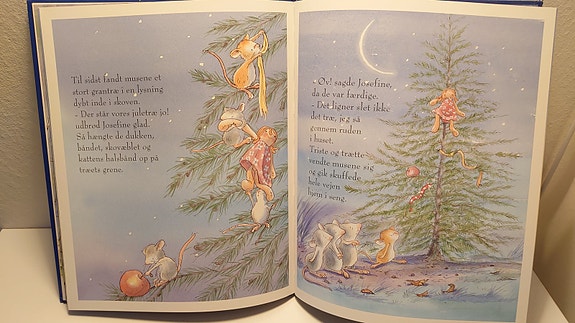 Til sidst fandt musene et
stort grantræ i en lysning
dybt inde i skoven.
- Der står vores juletræ jo!
udbrød Josefine glad.
Så hængte de dukken,
båndet, skovæblet og
kattens halsbånd op på
træets grene.
- Øv! sagde Josefine,
da de var færdige.
- Det ligner slet ikke
det træ, jeg så
gennem ruden
i huset.
Triste og trætte
vendte musene sig
og gik skuffede
hele vejen
hjem i seng.